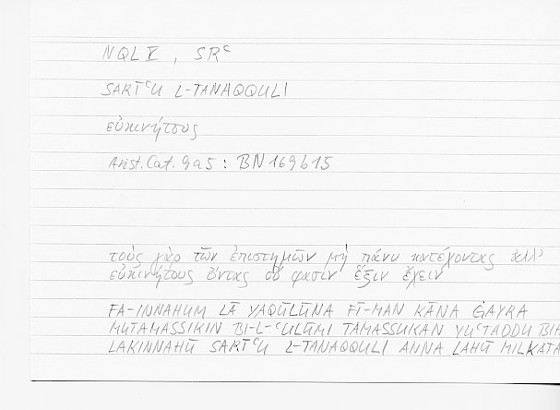 NQL V, SRʿ
SARĪʿU L-TANAQQULI
εὐκινήτους
Arist. Cat. 9a5 : BN 169b15
τοὺς γὰρ τῶν ἐπιστημῶν μὴ πάνυ κατέχοντας ἀλλ'
εὐκινήτους ὄντας οὔ φασιν ἕξιν ἔχειν
FA-INNAHUM LĀ YAQŪLŪNA FĪ-MAN KĀNA ĠAYRA
MUTAMASSIKIN BI-L-ʿULŪMI TAMASSUKAN YUʿTADDU BIH
LAKINNAHŪ SARĪʿU L-TANAQQULI ANNA LAHŪ MILKATA